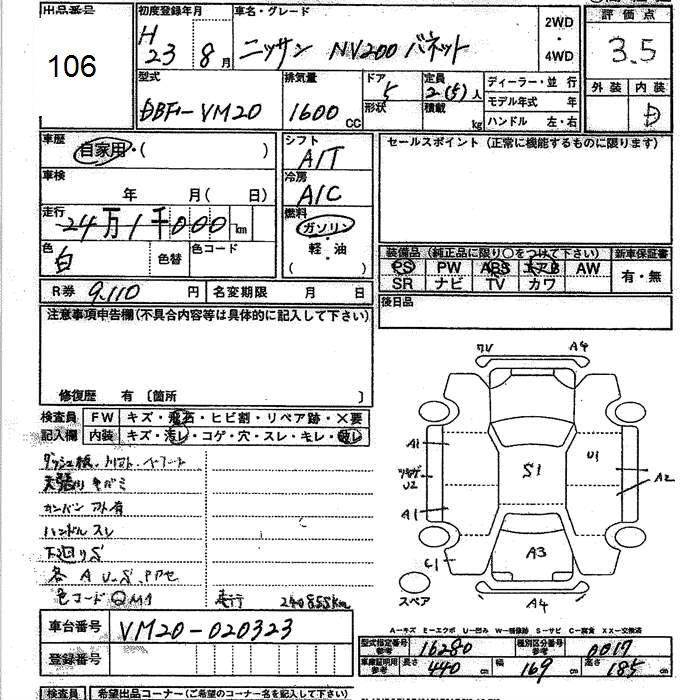 出品番号
106
初度登録年月
H 23 8月
車名・グレード
ニッサン NV200 バネット
2WD
・
4WD
評価点
3.5
外装 内装
D
型式
DBF-VM20
排気量
1600 CC
ドア
5
形状
定員
2(5)人
積載
kg
ディーラー・並 行
モデル年式 年
ハンドル 左・右
車歴
自家用・( )
車検
年 月( 日)
走行
24万1千000km
色
白
色替
色コード
シフト
A/T
冷房
A/C
燃料
ガソリン
軽・油
( )
セールスポイント (正常に機能するものに限ります)
装備品 (純正品に限り○をつけて下さい)
PS PW ABS エアB AW
SR ナビ TV カワ
新車保証書
有・無
R券 9,110 円
名変期限 月 日
後日品
注意事項申告欄(不具合内容等は具体的に記入して下さい)
修復歴 有 〔箇所 〕
検査員
記入欄
FW キズ・飛石・ヒビ割・リペア跡・×要
内装 キズ・汚レ・コゲ・穴・スレ・キレ・破レ
天張り キバミ
ハンドル スレ
下廻りS
色コード QM1 走行 240855km
車台番号 VM20-020323
登録番号
A4
A1
U2
A1
C1
S1
U1
A2
A3
A4
スペア
A-キズ E-エクボ U-凹み W-補修跡 S-サビ C-腐食 XX-交換済
型式指定番号
参考
16280
種別区分番号
参考
0017
車庫証明用
参考
長さ 440 cm
幅 169 cm
高さ 185 cm
検査員 希望出品コーナー(ご希望のコーナー名を記入下さい)